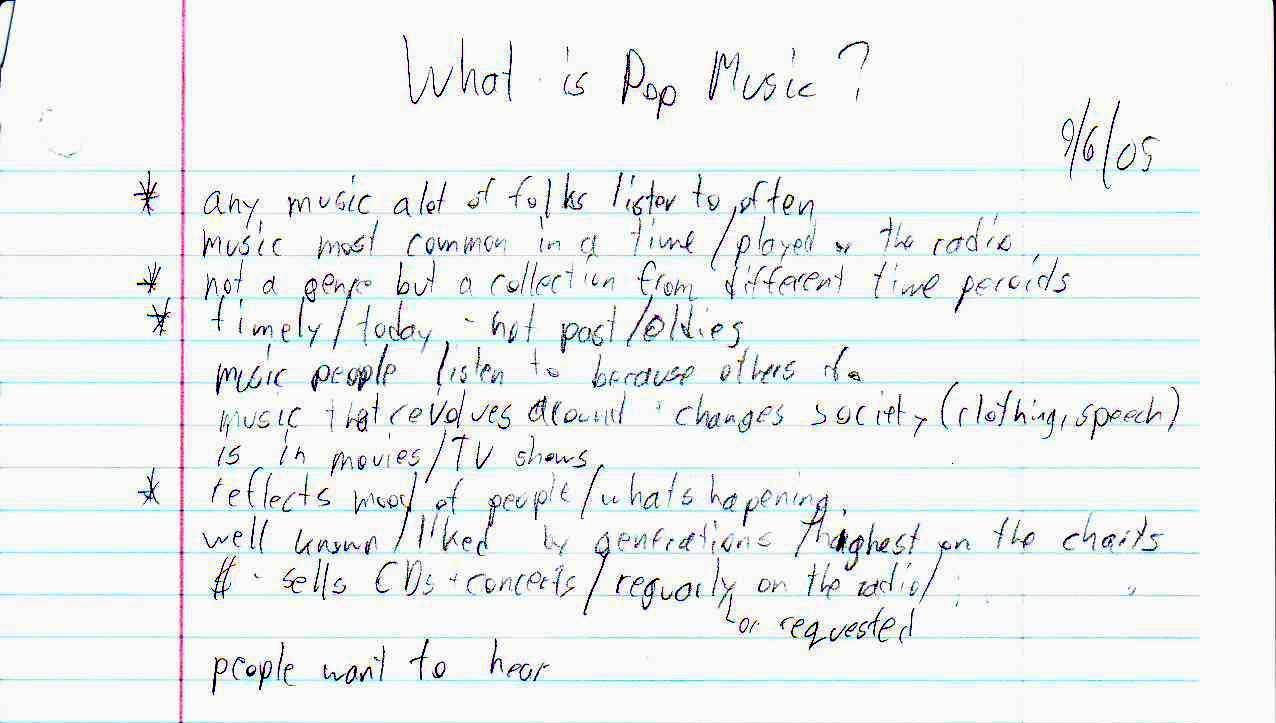 What is Pop Music?
9/6/05
* any music alot of folks listen to often
music most common in a time/played on the radio
* not a genre but a collection from different time peroids
* timely/today - not past/oldies
music people listen to because others do
music that revolves around + changes society (clothing, speech)
is in movies/TV shows
* reflects mood of people/whats happening
well known/liked by generations/highest on the charts
$ - sells CDs + concerts/reguarly on the radio/
or requested
people want to hear